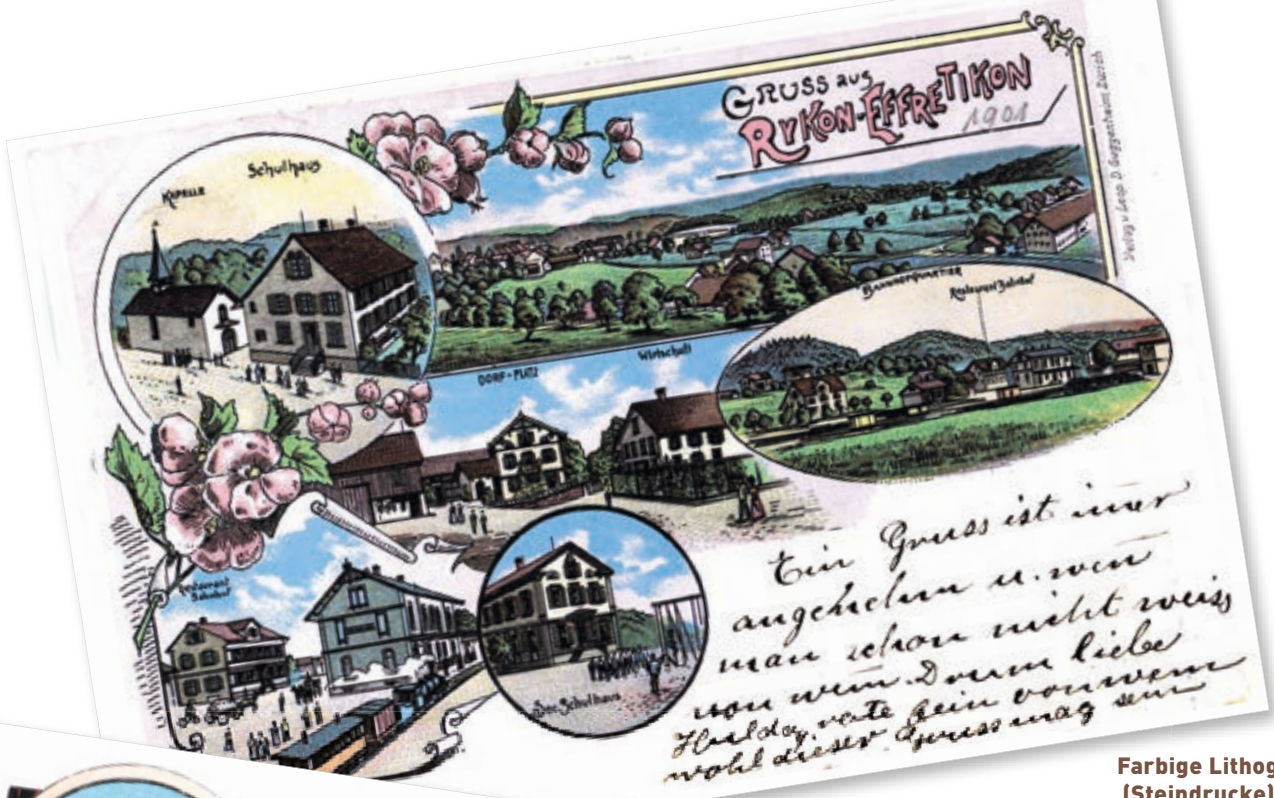 GRUSS aus
RYKON-EFFRETIKON
1901
Verlag v. Leop. D. Guggenheim, Zürich
KAPELLE
Schulhaus
BAHNHOFQUARTIER
Restaurant Bahnhof
DORF-PLATZ
Wirtschaft
Restaurant
Bahnhof
Sec. Schulhaus
Ein Gruss ist imer
angenehm u. wen
man schon nicht weiss
von wem. Drum liebe
Hulda, rate fein von wem
wohl dieser Gruss mag sein
Farbige Lithog
(Steindrucke)